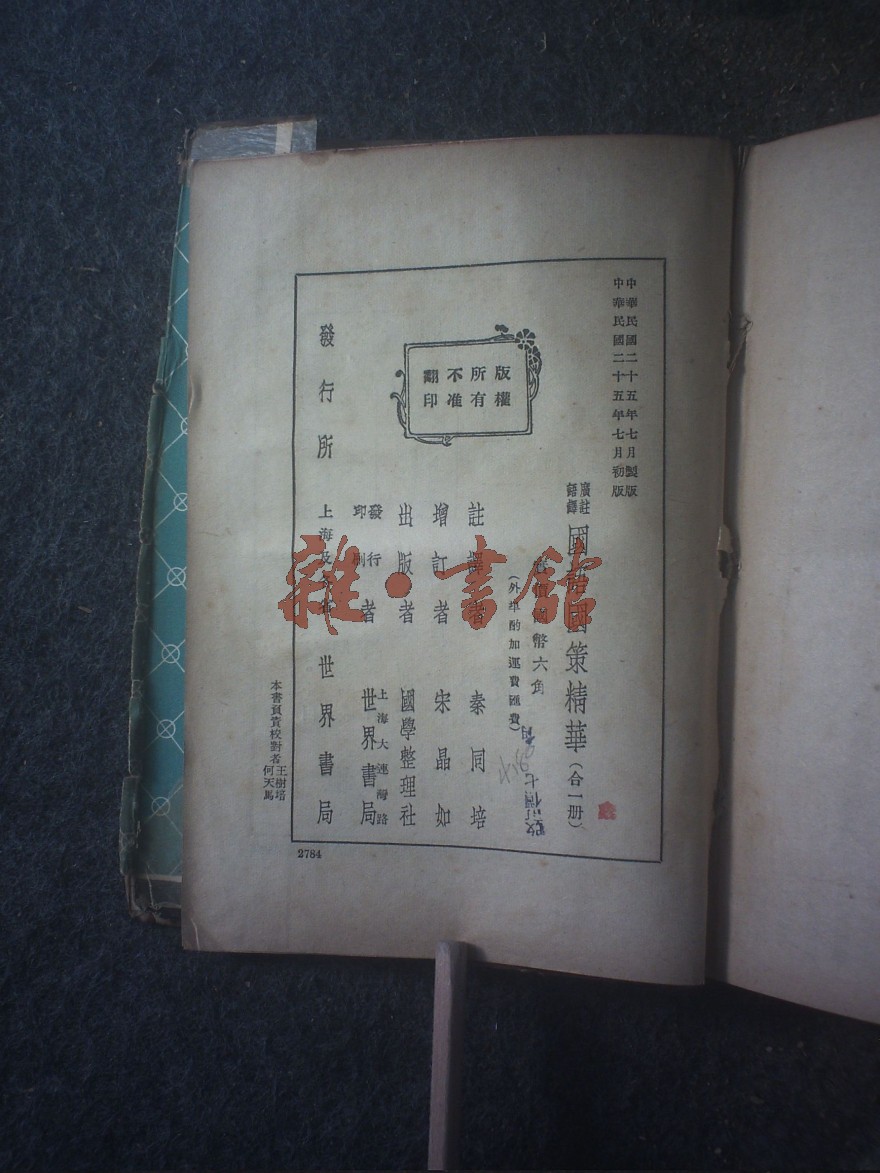 中華民國二十五年七月製版
中華民國二十五年七月初版
廣註
語譯
國語國策精華（合一册）
實價國幣六角
（外埠酌加運費匯費）
改訂價七角
版權
所有
不准
翻印
註譯者 秦同培
增訂者 宋晶如
出版者 國學整理社
發行
印刷
者
上海大連灣路
世界書局
發行所 上海及各省 世界書局
本書負責校對者王樹培
何天馬
2784
雜·書館